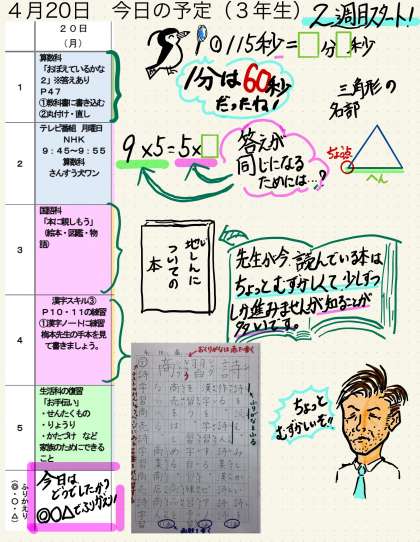 ４月２０日　今日の予定（３年生）
2週目スタート！
２０日
（月）
1
算数科
「おぼえているかな
２」※答えあり
Ｐ４７
①教科書に書き込む
②丸付け・直し
①115秒=□分□秒
1分は60秒
だったね！
三角形の
名部
ちょう点
へん
2
テレビ番組　月曜日
ＮＨＫ
９：４５～９：５５
算数科
さんすう犬ワン
9×5=5×□
答えが
同じになる
ためには…？
3
国語科
「本に親しもう」
（絵本・図鑑・物
語）
地しんに
ついての
本
先生が今、読んでいる本は
ちょっとむずかしくて、少しずつ
しか進みませんが知ることが
多いです。
4
漢字スキル③
Ｐ１０・１１の練習
①漢字ノートに練習
梅本先生の手本を見
て書きましょう。
おくりがなは赤で書く
5
生活科の復習
「お手伝い」
・せんたくもの
・りょうり
・かたづけ　など
家族のためにできる
こと
ちょっと
むずかしいぞ!!
ふりかえり
（◎・○・△）
今日は
どうでしたか？
◎○△でふりかえり！